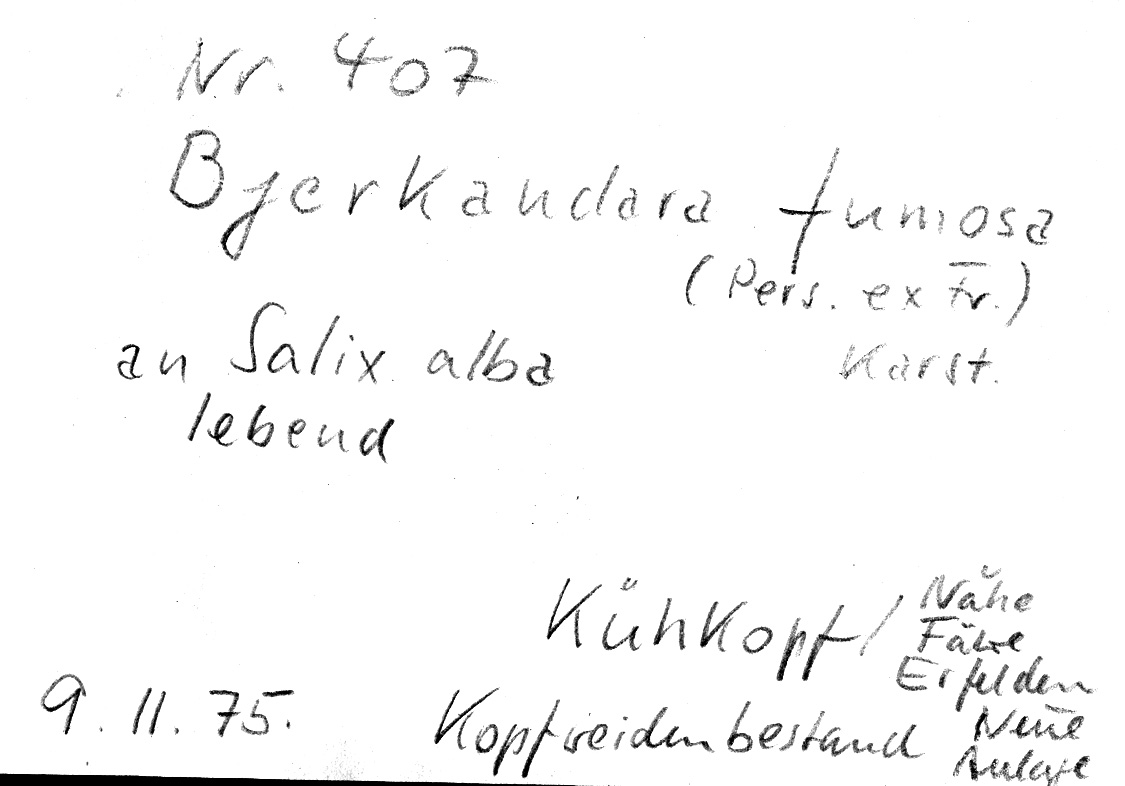 Nr. 407
Bjerkandara fumosa
(Pers. ex Fr.)
Karst.
an Salix alba
lebend
Kühkopf / Nähe
Fähre
Erfelden
9.11.75. Kopfweidenbestand Neue
Anlage